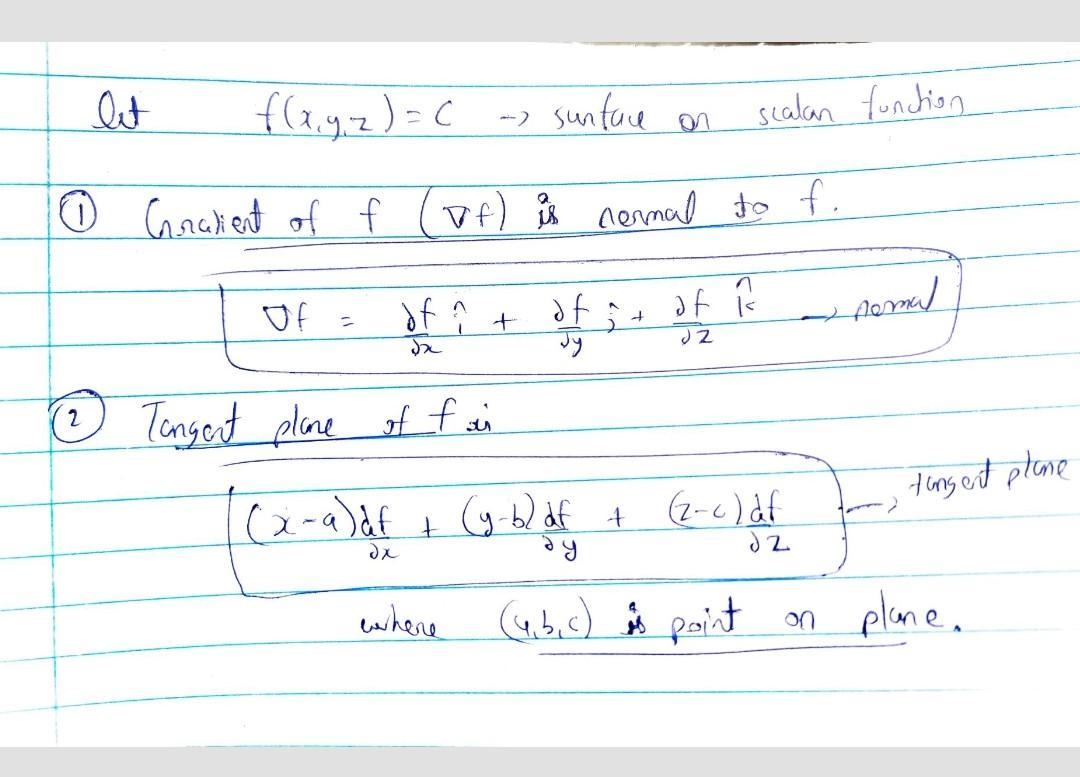 let f(x,y,z) = C -> surface or scalar function
① Gradient of f (∇f) is normal to f.
∇f = ∂f/∂x î + ∂f/∂y ĵ + ∂f/∂z k̂ → normal
② Tangent plane of f is
(x-a) ∂f/∂x + (y-b) ∂f/∂y + (z-c) ∂f/∂z → tangent plane
where (a,b,c) is point on plane.